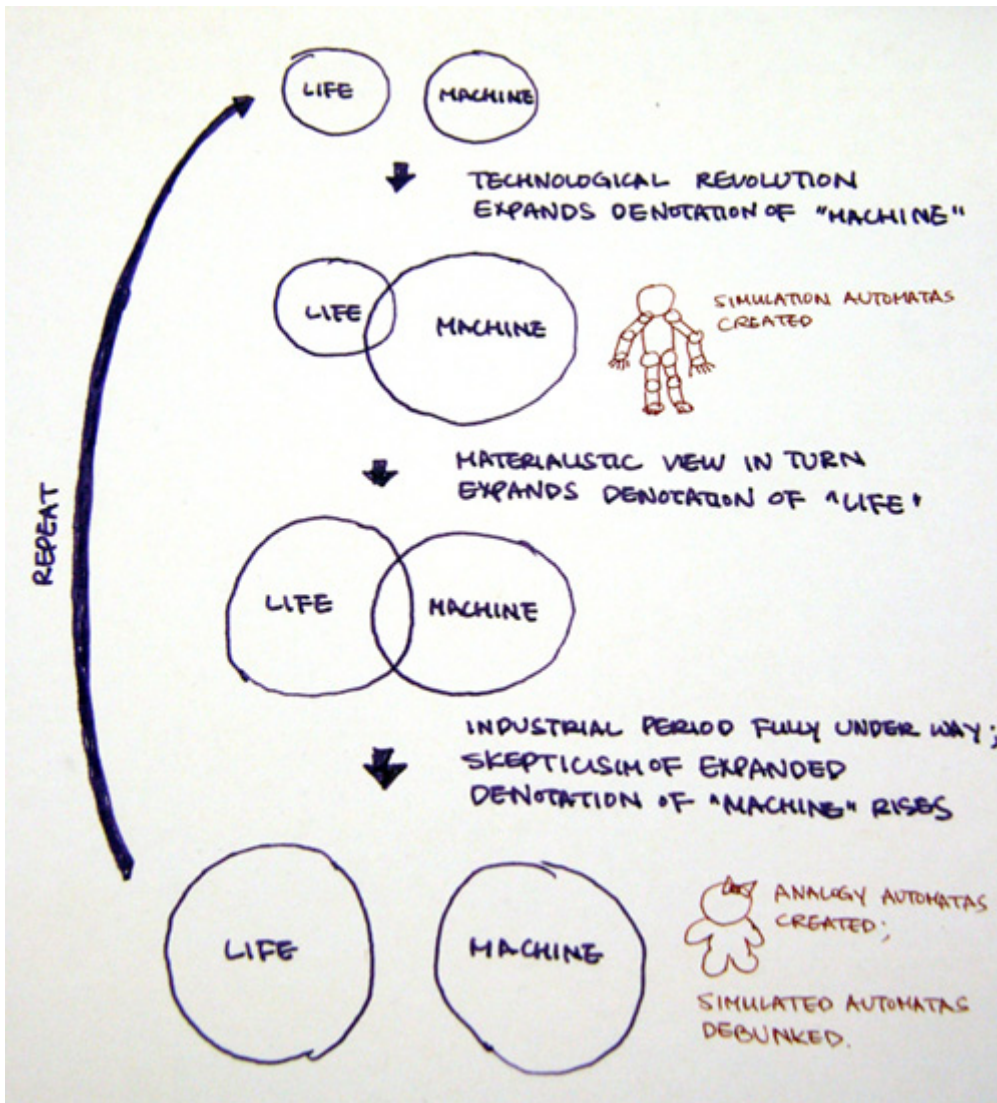 LIFE
MACHINE
TECHNOLOGICAL REVOLUTION
EXPANDS DENOTATION OF "MACHINE"
LIFE
MACHINE
SIMULATION AUTOMATAS
CREATED
MATERIALISTIC VIEW IN TURN
EXPANDS DENOTATION OF "LIFE"
REPEAT
LIFE
MACHINE
INDUSTRIAL PERIOD FULLY UNDER WAY;
SKEPTICISIM OF EXPANDED
DENOTATION OF "MACHINE" RISES
LIFE
MACHINE
ANALOGY AUTOMATAS
CREATED;
SIMULATED AUTOMATAS
DEBUNKED.